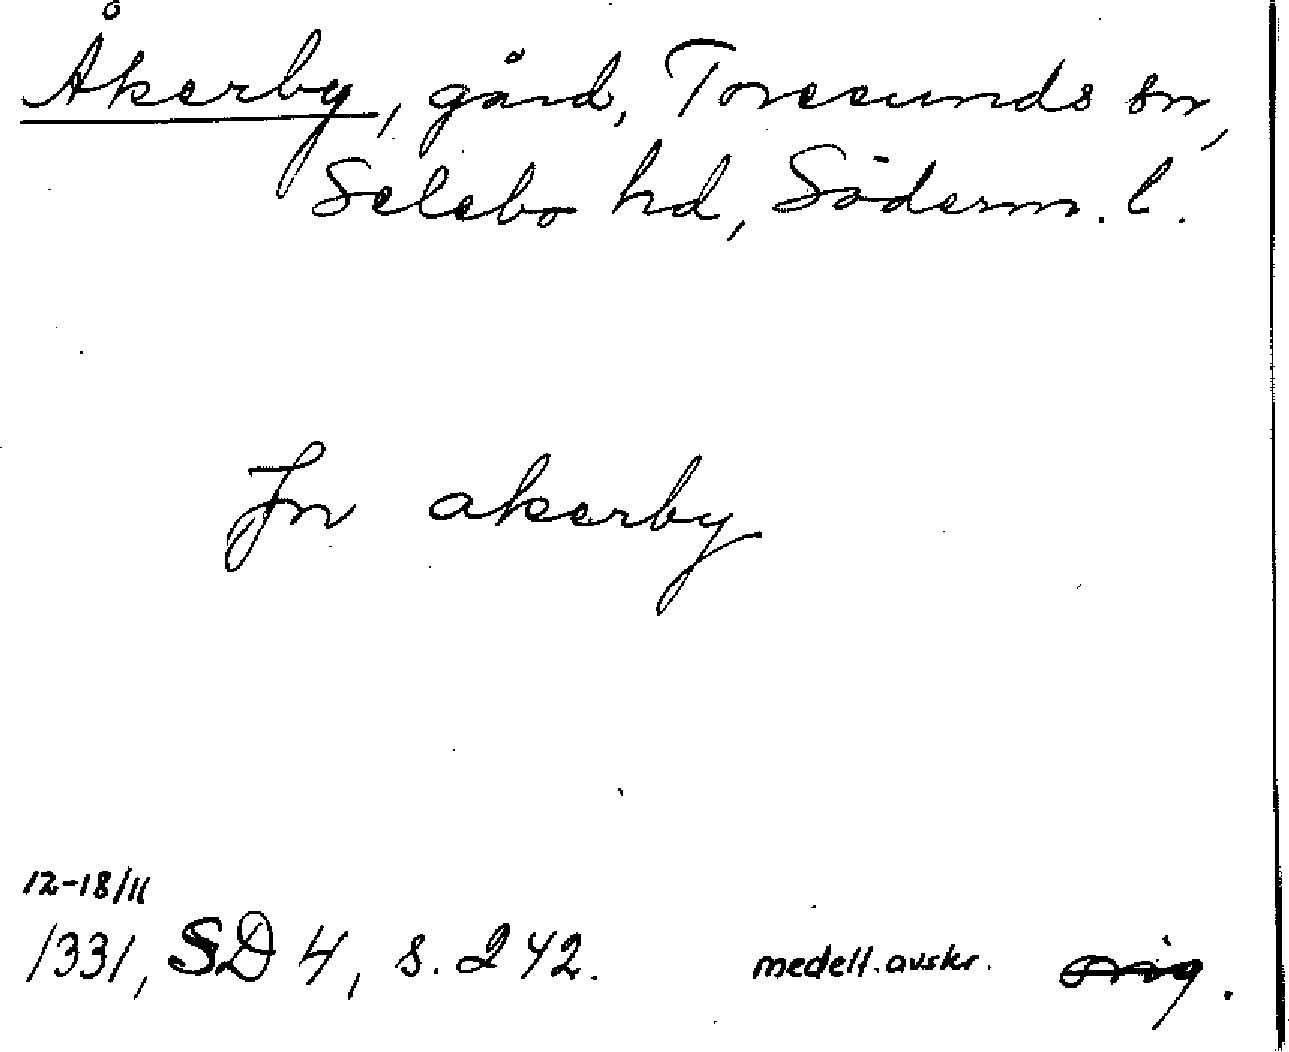 Åkerby, gård, Toresunds sn,
Selebo hd, Söderm. l.
Jn akerby
12-18/11
1331, SD 4, s. 242. medelt. avskr. orig.